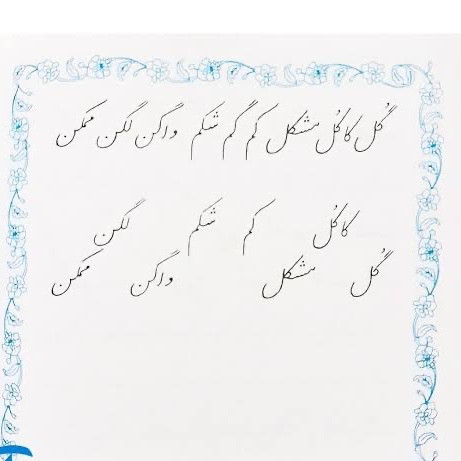 گُل کاکُل مشکل کم گم شکم واگن لگن ممکن
کاکُل کم شکم لگن
گُل مشکل واگن ممکن